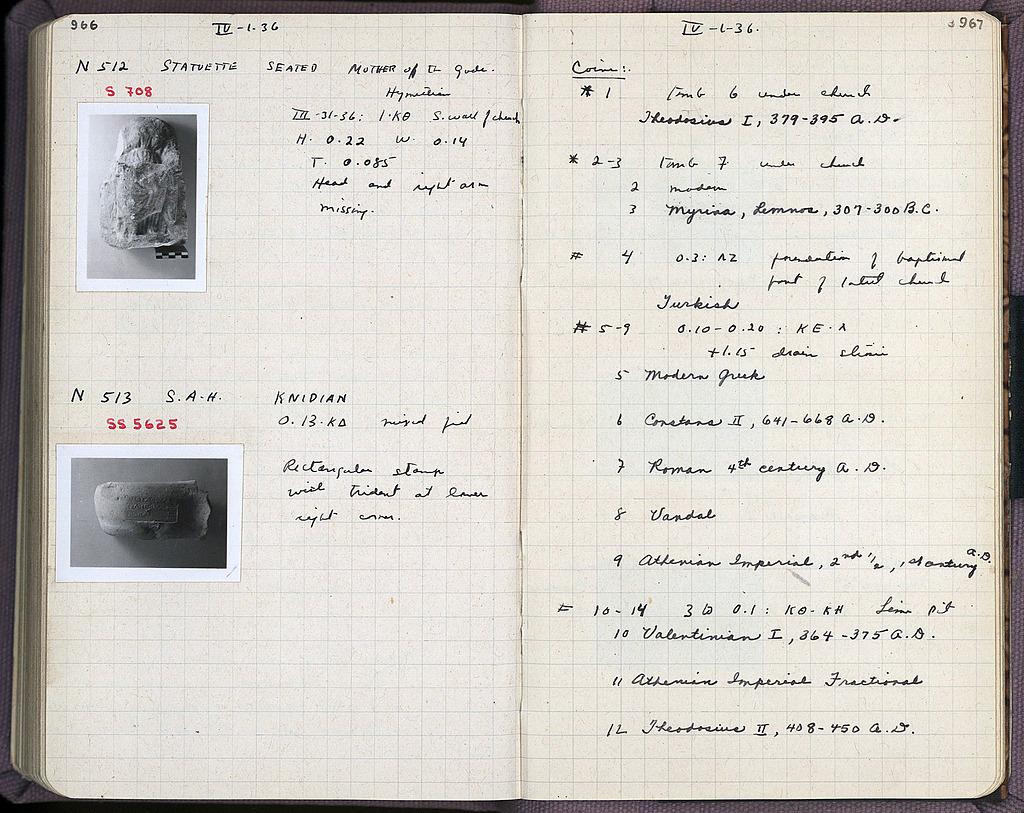 966
IV-1-36
N 512 STATUETTE SEATED MOTHER of th Gods.
S 708
Hymettian
III-31-36: 1·KΘ S. wall of church
H. 0.22 W. 0.14
T. 0.085
Head and right arm
missing.
N 513 S.A.H. KNIDIAN
SS 5625
0.13·KΔ mixed fill
Rectangular stamp
with trident at lower
right corner.
967
IV-1-36.
Coins:
* 1 Tomb 6 under church
Theodosius I, 379-395 A.D.
* 2-3 Tomb 7 under church
2 modern
3 Myrina, Lemnos, 307-300 B.C.
# 4 0.3: ΛZ foundation of baptismal
font of latest church
Turkish
# 5-9 0.10-0.20: KE·Λ
+1.15 drain
5 Modern Greek
6 Constans II, 641-668 A.D.
7 Roman 4th century A.D.
8 Vandal
9 Athenian Imperial, 2nd 1/2, 1st century A.D.
10-14 3 0.1: KΘ-KH Lime pit
10 Valentinian I, 364-375 A.D.
11 Athenian Imperial Fractional
12 Theodosius II, 408-450 A.D.